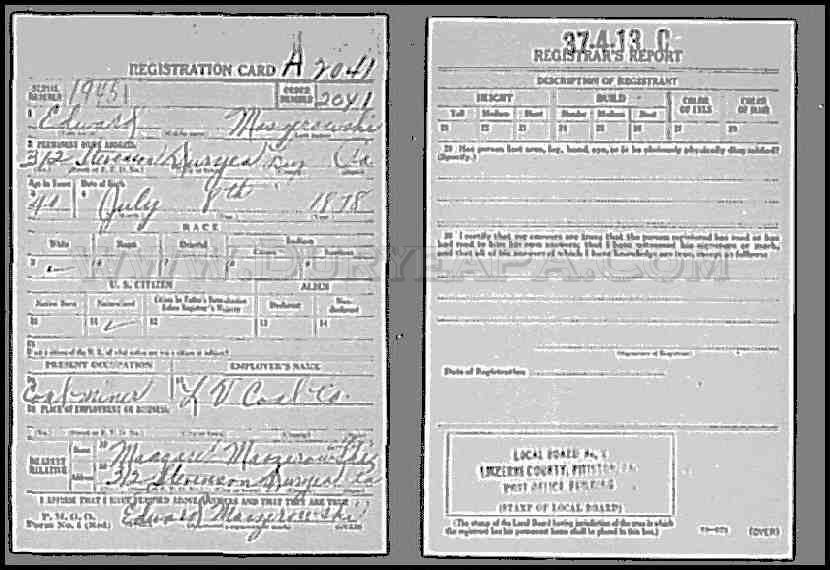 REGISTRATION CARD A 2041
SERIAL NUMBER 1945
ORDER NUMBER 2041
1 Edward
2 PERMANENT HOME ADDRESS:
312 Stevenson Duryea Luz Pa
Age in Years Date of Birth
July 8th 1878
RACE
White Negro Oriental Indian
Citizen
5 6 7 8 9
U. S. CITIZEN ALIEN
Native Born Naturalized Citizen by Father's Naturalization Before Registrant's Majority Declarant Non-declarant
10 11 12 13 14
15
If not a citizen of the U. S., of what nation are you a citizen or subject?
PRESENT OCCUPATION EMPLOYER'S NAME
Coal miner L V Coal Co.
18 PLACE OF EMPLOYMENT OR BUSINESS:
(No.) (Street or R. F. D. No.) (City or town) (County) (State)
NEAREST RELATIVE
Name
Address 312 Stevenson Duryea Pa
I AFFIRM THAT I HAVE VERIFIED ABOVE ANSWERS AND THAT THEY ARE TRUE
P. M. G. O.
Form No. 1 (Red) Edward (OVER)
37-4-13 C
REGISTRAR'S REPORT
DESCRIPTION OF REGISTRANT
HEIGHT BUILD COLOR OF EYES COLOR OF HAIR
Tall Medium Short Slender Medium Stout
21 22 23 24 25 26 27 28
29 Has person lost arm, leg, hand, eye, or is he obviously physically disqualified?
(Specify.)
30 I certify that my answers are true; that the person registered has read or has
had read to him his own answers; that I have witnessed his signature or mark,
and that all of his answers of which I have knowledge are true, except as follows:
(Signature of Registrar)
Date of Registration
LOCAL BOARD No.
LUZERNE COUNTY, PITTSTON, PA.
POST OFFICE BUILDING
(STAMP OF LOCAL BOARD)
(The stamp of the Local Board having jurisdiction of the area in which
the registrant has his permanent home shall be placed in this box.)
(OVER)
WWW.DURYEAPA.COM